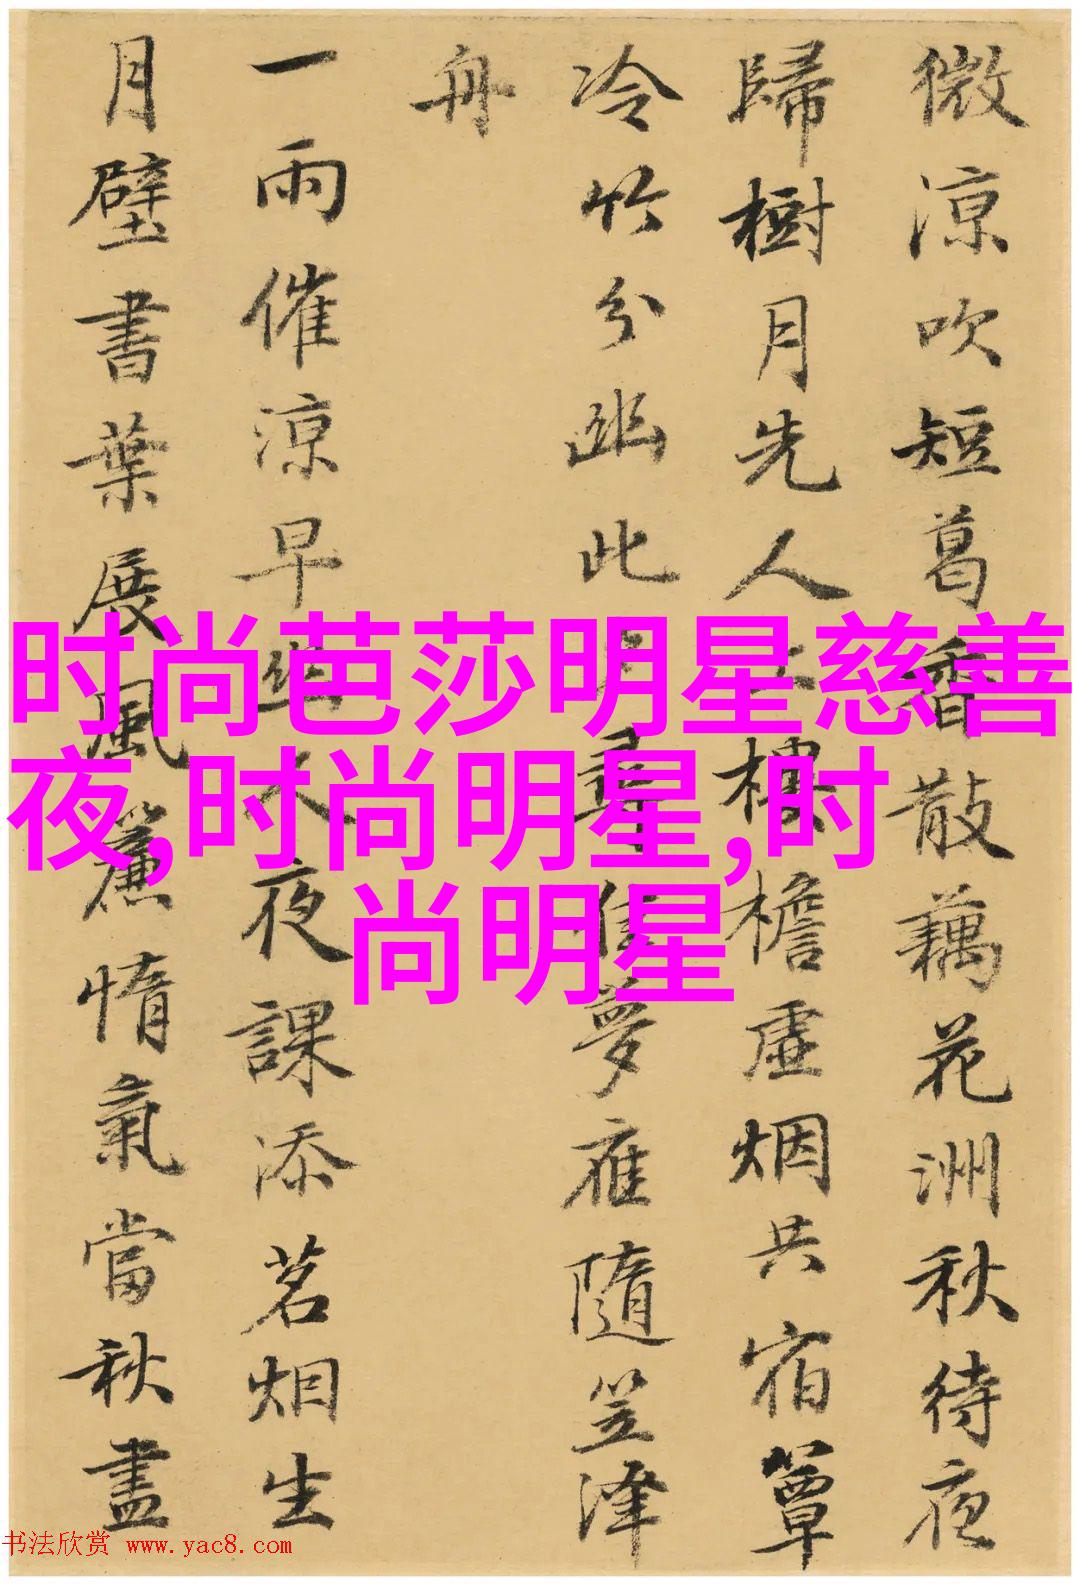 微涼吹短葛香散藕花洲秋待夜
歸樹月先人上樓檐虛烟共宿簟
冷竹分幽此尋佳夢雁隨笠澤
舟
一雨催涼早幽人夜課添茗烟生
月壁書葉展風簾惰氣當秋盡
时尚芭莎明星慈善
夜,时尚明星,时
尚明星
书法欣赏 www.yac8.com